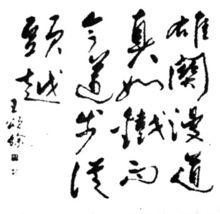 雄關漫道
真如鐵而
今邁步從
頭越